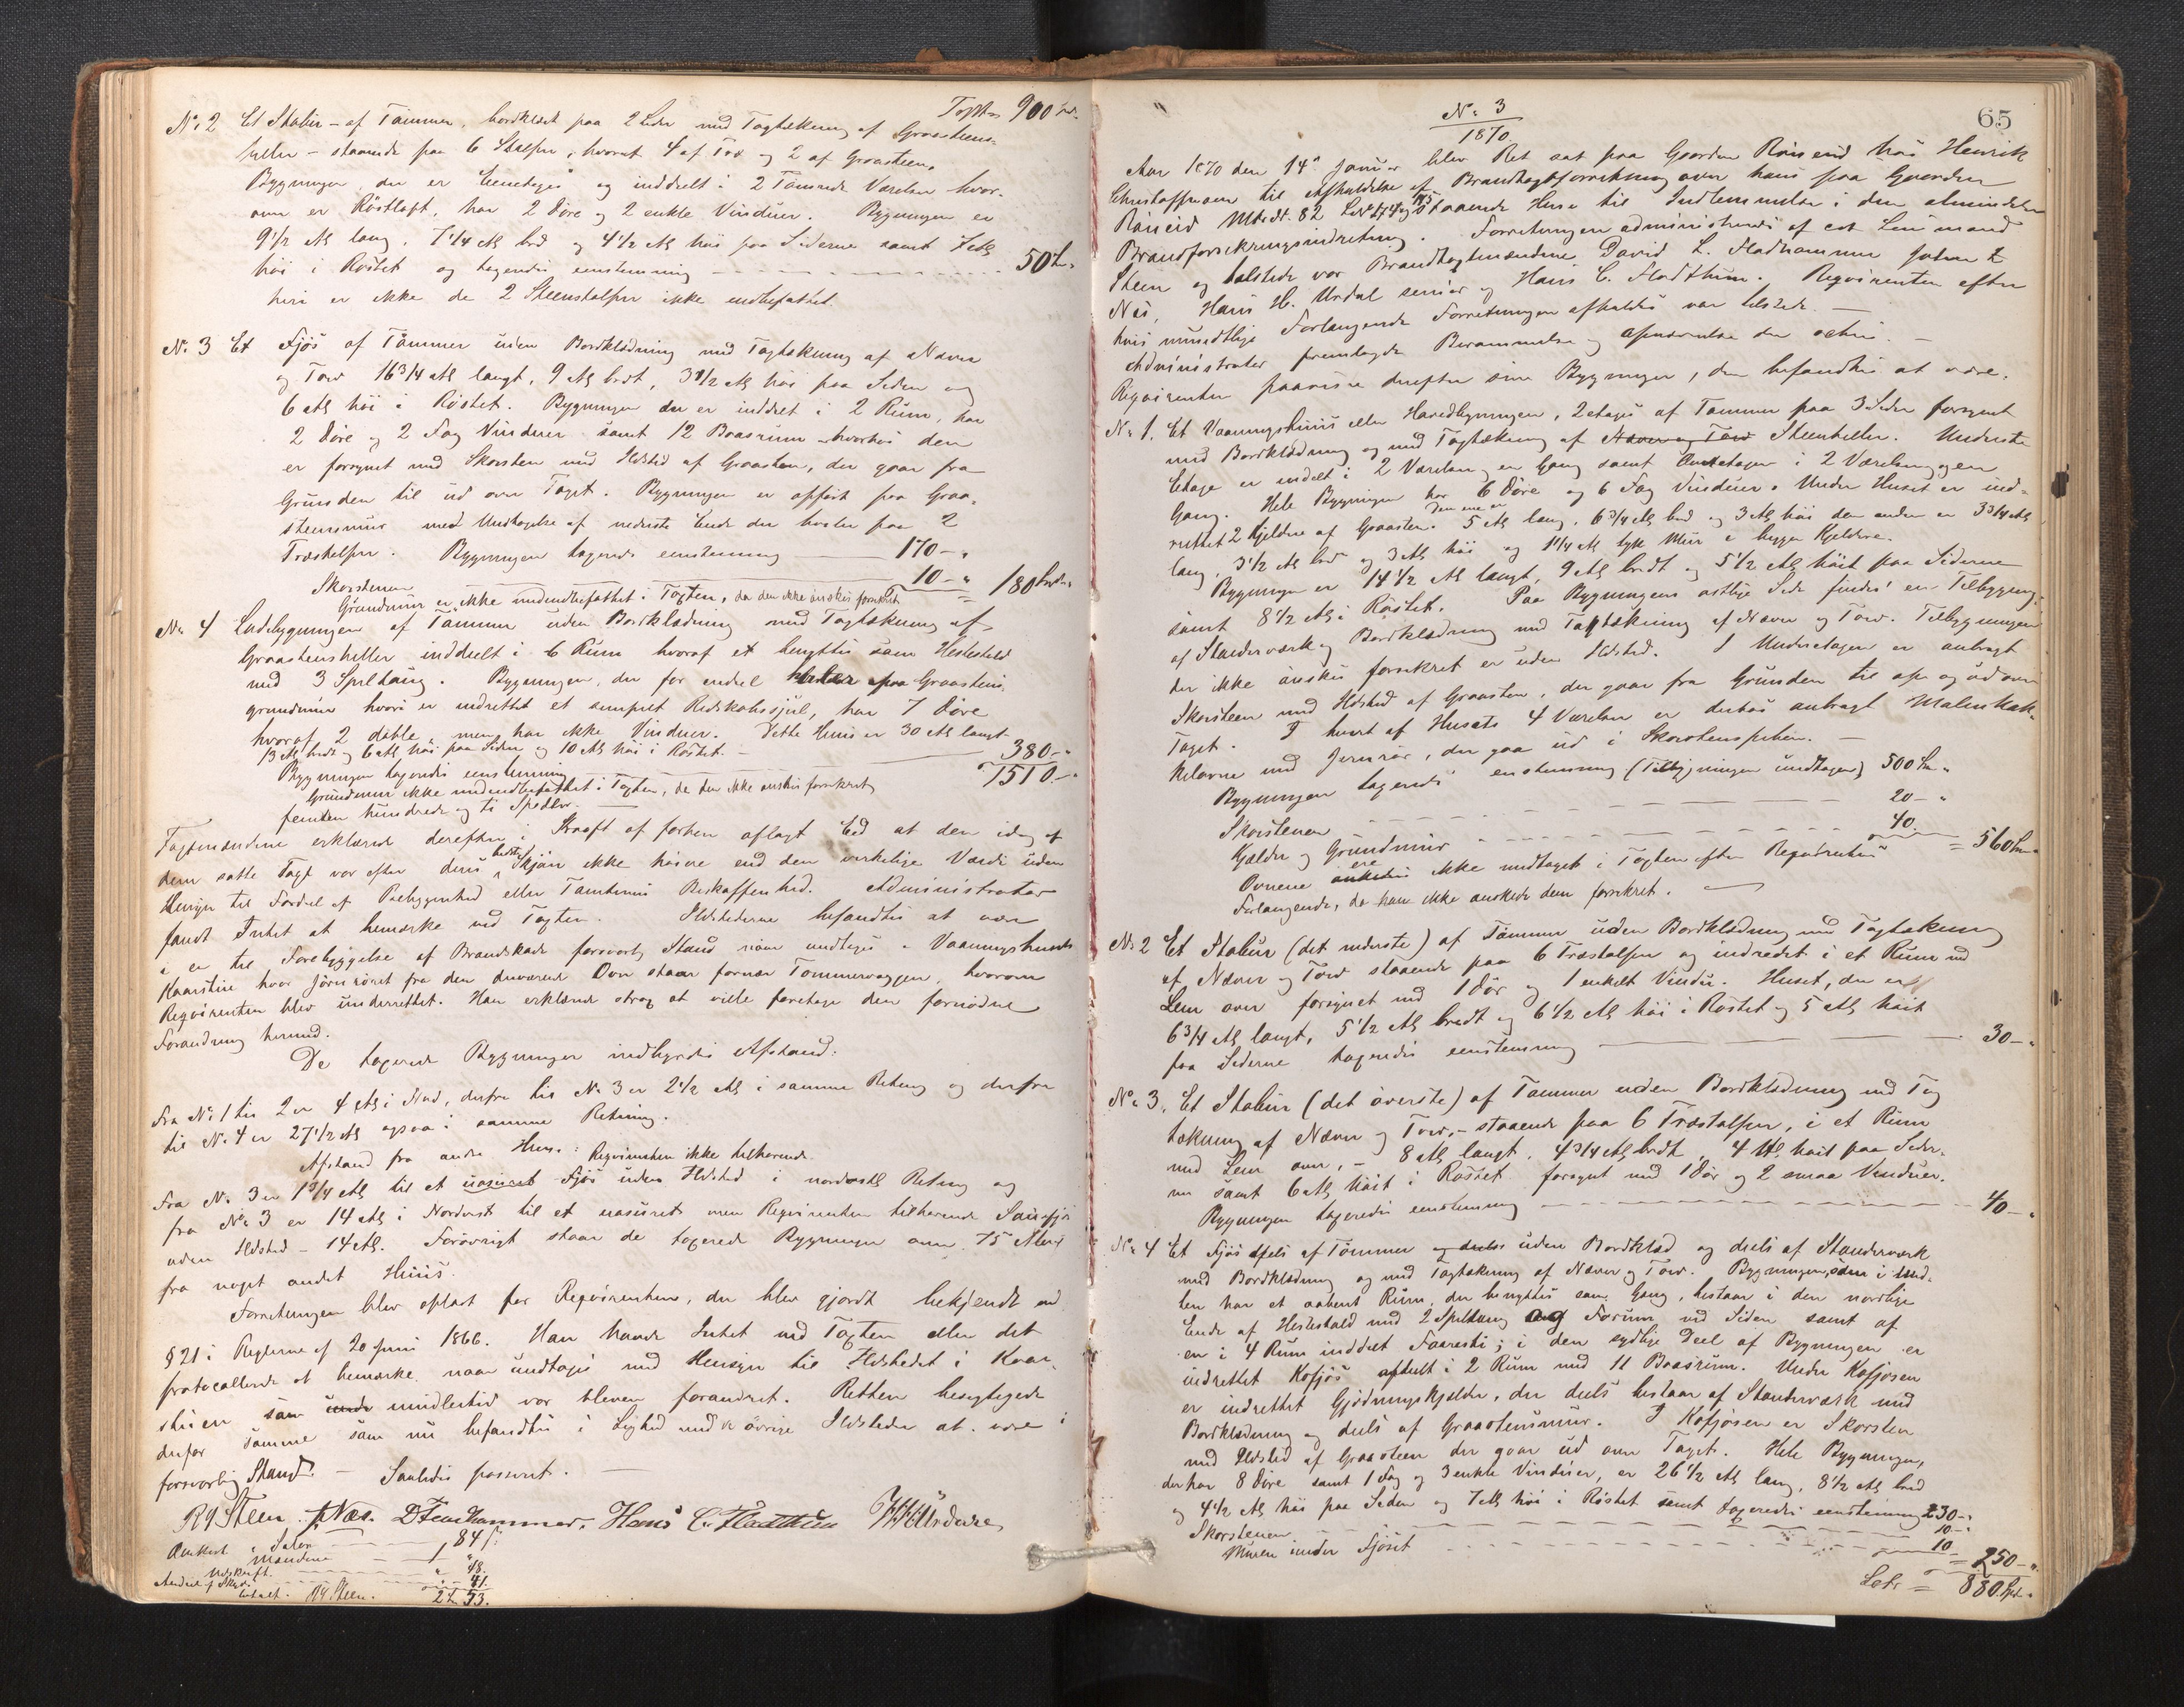 Transp. 900 Spd.
No 2 Et Stabur - af Tømmer, bordklædt paa 2 Sider med Tagtækning af Graasteens-
heller - staaende paa 6 Stolper, hvoraf 4 af Træ og 2 af Graasteen.
Bygningen, der er eenetages og inddeelt i 2 Værelser hvor-
over er Røstloft, har 2 Døre og 2 enkle Vinduer. Bygningen er
9 1/2 Al. lang, 7 1/4 Al. bred og 4 1/2 Al. høi paa Siderne samt
høi i Røstet og taxeredes eenstemmig 50 "
heri er ikke de 2 Steenstolper ikke indbefattet
No 3 Et Fjøs af Tømmer uden Bordklædning med Tagtækning af Næver
og Torv 16 3/4 Al. langt, 9 Al. bredt, 3 1/2 Al. høi paa Siden og
6 Al. høi i Røstet. Bygningen der er inddelt i 2 Rum, har
2 Døre og 2 Fag Vinduer samt 12 Baasrum - hvorhos den
er forsynet med Skorsten med Ildsted af Graasten, der gaar fra
Grunden til ud over Taget. Bygningen er opført paa Graa-
steensmur med Undtagelse af nederste Ende der hviler paa 2
Træstolper. Bygningen taxeredes eenstemmig 170 - "
Skorstenen 10 - " = 180 Spd. "
Grundmur er ikke medindbefattet i Taxten, da den ikke ønskes forsikret
No 4 Ladebygningen af Tømmer uden Bordklædning med Tagtækning af
Graasteensheller inddeelt i 6 Rum hvoraf et benyttes som Hestestald
med 3 Spiltaug. Bygningen, der for endeel hviler paa Graasteens
grundmur hvori er indrettet et simpelt Redskabsskjul, har 7 Døre
hvoraf 2 doble, men har ikke Vinduer. Dette Huus er 30 Al. langt
13 Al. bredt og 6 Al. høi paa Siden og 10 Al. høi i Røstet.
Bygningen taxeredes eenstemmig 380 - "
Grundmur ikke medindbefattet i Taxten, da den ikke ønskes forsikret 1510 - "
femten hundrede og ti Spedlr.
Taxtmændene erklærede derefter i Kraft af forhen aflagt Eed at den idag af
dem satte Taxt var efter deres bedste Skjøn ikke høiere end den virkelige Værdi uden
Hensyn til Fordeel af Beliggenhed eller Tomtens Beskaffenhed. Administrator
fandt Intet at bemærke ved Taxten. Ildstederne befandtes at være
i en til Forebyggelse af Brandskade forsvarlig Stand naar undtages i Vaaningshusets
Kaarstue hvor Jernrøret fra den derværende Ovn staar fornær Tømmervæggen, hvorom
Reqvirenten blev underrettet. Han erklærede strax at ville foretage den fornødne
Forandring hermed.
De taxerede Bygningers indbyrdes Afstand:
Fra No 1 til 2 er 4 Al. i Nord, derfra til No 3 er 2 1/2 Al. i samme Retning og derfra
til No 4 er 27 1/2 Al. ogsaa i samme Retning.
Afstand fra andre Huse: Reqvirenten ikke tilhørende.
Fra No 3 er 1 3/4 Al. til et uasureret Fjøs uden Ildsted i nordostl Retning og
fra No 3 er 14 Al. i Nordvest til et uasureret men Reqvirenten tilhørende Sauefjøs
uden Ildsted - 14 Al. Forøvrigt staar de taxerede Bygninger over 75 Alen
fra noget andet Huus.
Forretningen blev oplæst for Reqvirenten, der blev gjordt bekjendt med
§ 21 i Reglerne af 20 Juni 1866. Han havde Intet ved Taxten eller det
protocollerede at bemærke, naar undtages med Hensyn til Ildstedet i Kaar-
stuen som imidlertid var bleven forandret. Retten besigtigede
derfor samme som nu befandtes i Lighed med de øvrige Ildsteder at være i
forsvarlig Stand. - Saaledes passeret.
R Steen. J Næs. D. Fladhammer. Hans C. Fladthun H H Urdal
65
No 3
1870
Aar 1870 den 14de Januar blev Ret sat paa Gaarden Røneid hos Henrik
Christoffersen til Afholdelse af Brandtaxtforretning over hans paa Gaarden
Røneid Matr. Nr. 82 staaende Huse til Indlemmelse i den almindelige
Brandforsikringsindretning. Forretningen administreredes af cst Lensmand
Steen og tilstede var Brandtaxtmændene David L. Fladhammer Johan
Næs, Hans H. Urdal senior og Hans C. Fladthun. Reqvirenten efter
hvis mundtlige Forlangende Forretningen afholdes var tilstede.
Administrator fremlagde Berammelse og Opnævnelse der acter.
Reqvirenten paaviste derefter sine Bygninger, der befandtes at være:
No 1. Et Vaaningshuus eller Hovedbygningen, 2 etages af Tømmer paa 3 Sider forsynet
med Bordklædning og med Tagtækning af Næver og Torv Steenheller. Underste
Etage er inddelt i 2 Værelser, en Gang samt Overetagen i 2 Værelser og en
Gang. Hele Bygningen har 6 Døre og 6 Fag Vinduer. Under Huset er ind-
rettet 2 Kjeldre af Graasten. Den ene er 5 Al. lang, 6 3/4 Al. bred og 3 Al. høi den anden er 3 3/4 Al.
lang, 3 1/2 Al. bred og 3 Al. høi og 1 1/4 Al. tyk Muur i begge Kjeldere.
Bygningen er 14 1/2 Al. langt, 9 Al. bredt og 5 1/2 Al. høit paa Siderne
samt 8 1/2 Al. i Røstet. Paa Bygningens østlige Side findes en Tilbygning
af Stænderværk og Bordklædning med Tagtækning af Næver og Torv. Tilbygningen
der ikke ønskes forsikret er uden Ildsted. I Underetagen er anbragt
Skorsteen med Ildsted af Graasten, der gaar fra Grunden til op og ud over
Taget. I hvert af Husets 4 Værelser er derhos anbragt Malmkak-
kelovne med Jernrør, der gaa ud i Skorstenspiben.
Bygningen taxeredes eenstemmig (Tilbygningen undtagen) 500 Spd "
Skorstenen 20 - "
Kjelder og Grundmuur 40. = 560 Spd "
Ovnene ere ikke medtaget i Taxten efter Reqvirentens
Forlangende, da han ikke ønskede dem forsikret.
No 2 Et Stabur (det nederste) af Tømmer uden Bordklædning med Tagtækning
af Næver og Torv staaende paa 6 Træstolper og indredet i et Rum med
Lem over forsynet med 1 Dør og 1 enkelt Vindu. Huset, der er
6 3/4 Al. langt, 5 1/2 Al. bredt og 6 1/2 Al. høi i Røstet og 5 Al. høit
paa Siderne taxeredes eenstemmig 30 - "
No 3. Et Stabur (det øverste) af Tømmer uden Bordklædning med Tag
tækning af Næver og Torv, - staaende paa 6 Træstolper, i et Rum
med Lem over, - 8 Al. langt, 4 3/4 Al. bredt, 4 Al. høit paa Sider-
ne samt 6 Al. høit i Røstet forsynet med 1 Dør og 2 smaa Vinduer.
Bygningen taxeredes eenstemmig 40 - "
No 4 Et Fjøs dels af Tømmer og deels uden Bordklæd og deels af Stænderværk
med Bordklædning og med Tagtækning af Næver og Torv. Bygningen, som i Mid-
ten har et aabent Rum, der benyttes som Gang, bestaar i den nordlige
Ende af Hestestald med 2 Spiltaug og Forrum ved Siden samt af
en i 4 Rum inddeelt Faaresti; i den sydlige Deel af Bygningen er
indrettet Kofjøs afdeelt i 2 Rum med 11 Baasrum. Under Kofjøsen
er indrettet Gjødningskjelder, der deels bestaar af Stænderværk med
Bordklædning og deels af Graasteensmuur. I Kofjøsen er Skorsten
med Ildsted af Graasteen der gaar ud over Taget. Hele Bygningen,
der har 8 Døre samt 1 Fag og 3 enkle Vinduer, er 26 1/2 Al. lang, 8 1/2 Al. bred
og 4 1/2 Al. høi paa Siden og 7 Al. høi i Røstet samt taxeredes eenstemmig 230 - "
Skorstenen 10 - "
Muren under Fjøset 10 - = 250 - "
Lats = 880 Spd. "